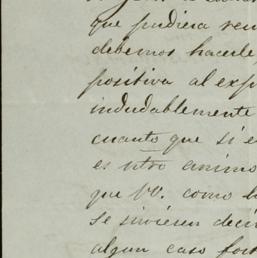 que pudiera ren
debemos hacerle
positiva al exp
indudablemente
cuanto que si e
es ntro animo
que VV. como b
se sirviesen deci
algun caso fort